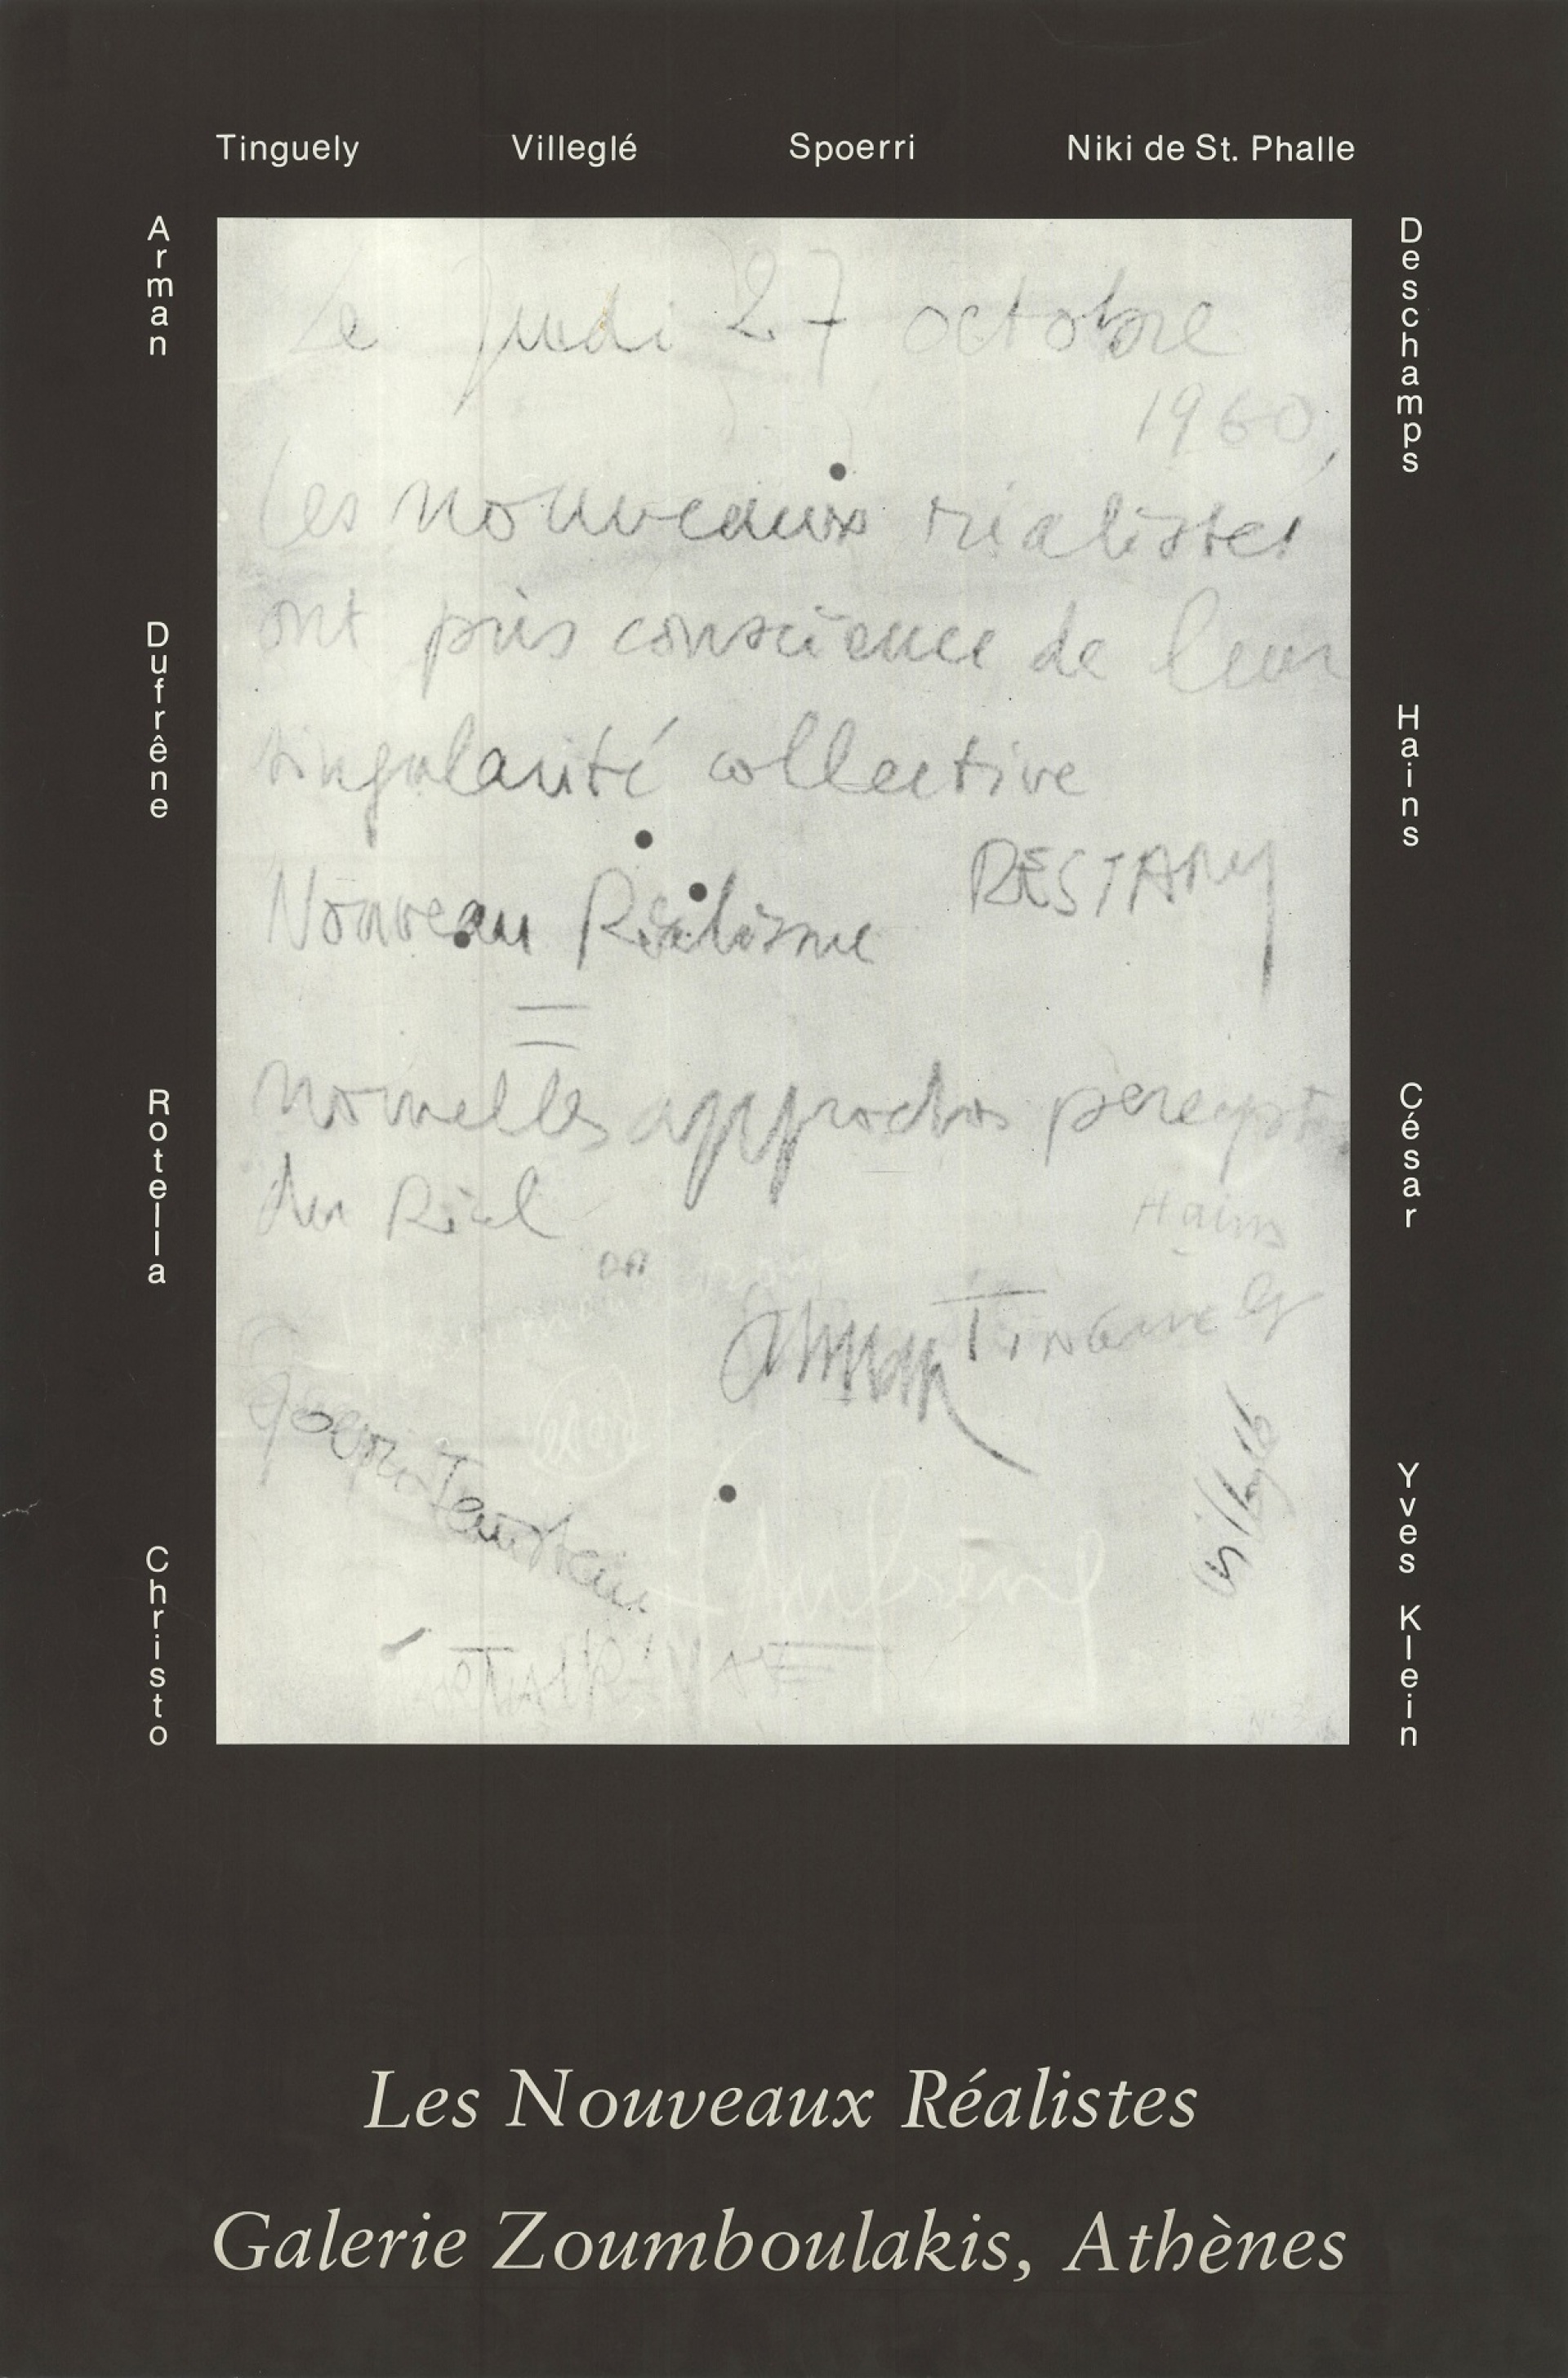 Tinguely Villeglé Spoerri Niki de St. Phalle
Arman
Dufrêne
Rotella
Christo
Deschamps
Hains
César
Yves Klein
Le Jeudi 27 octobre
1960,
Les nouveaux réalistes
ont pris conscience de leur
singularité collective
RESTANY
Nouveau Réalisme
=
nouvelles approches percept
du Réel
Hains
Arman Tinguely
Villeglé
Dufrêne
Les Nouveaux Réalistes
Galerie Zoumboulakis, Athènes